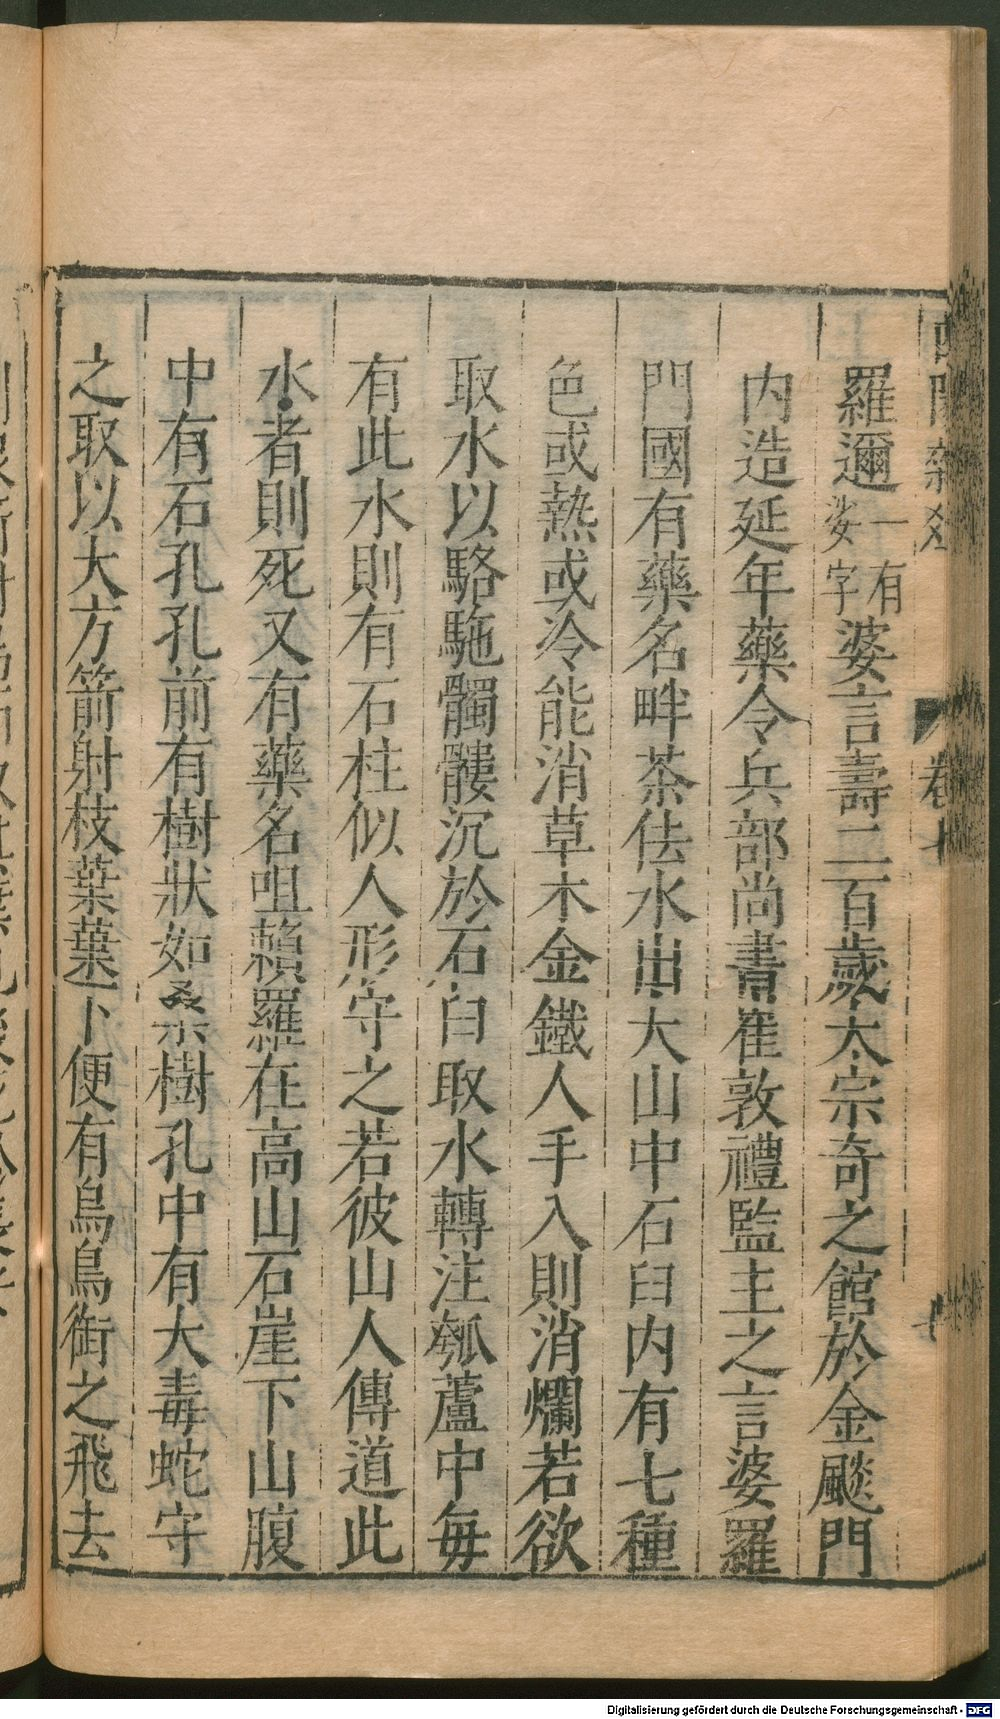 羅邇一有娑字婆言壽二百歲太宗奇之館於金飈門
内造延年藥令兵部尚書崔敦禮監主之言婆羅
門國有藥名畔茶佉水出大山中石臼内有七種
色或熱或冷能消草木金鐵人手入則消爛若欲
取水以駱駞髑髏沉於石臼取水轉注瓠蘆中每
有此水則有石柱似人形守之若彼山人傳道此
水者則死又有藥名咀賴羅在高山石崖下山腹
中有石孔孔前有樹狀如桑樹孔中有大毒蛇守
之取以大方箭射枝葉葉下便有烏鳥銜之飛去
卷七
Digitalisierung gefördert durch die Deutsche Forschungsgemeinschaft - DFG